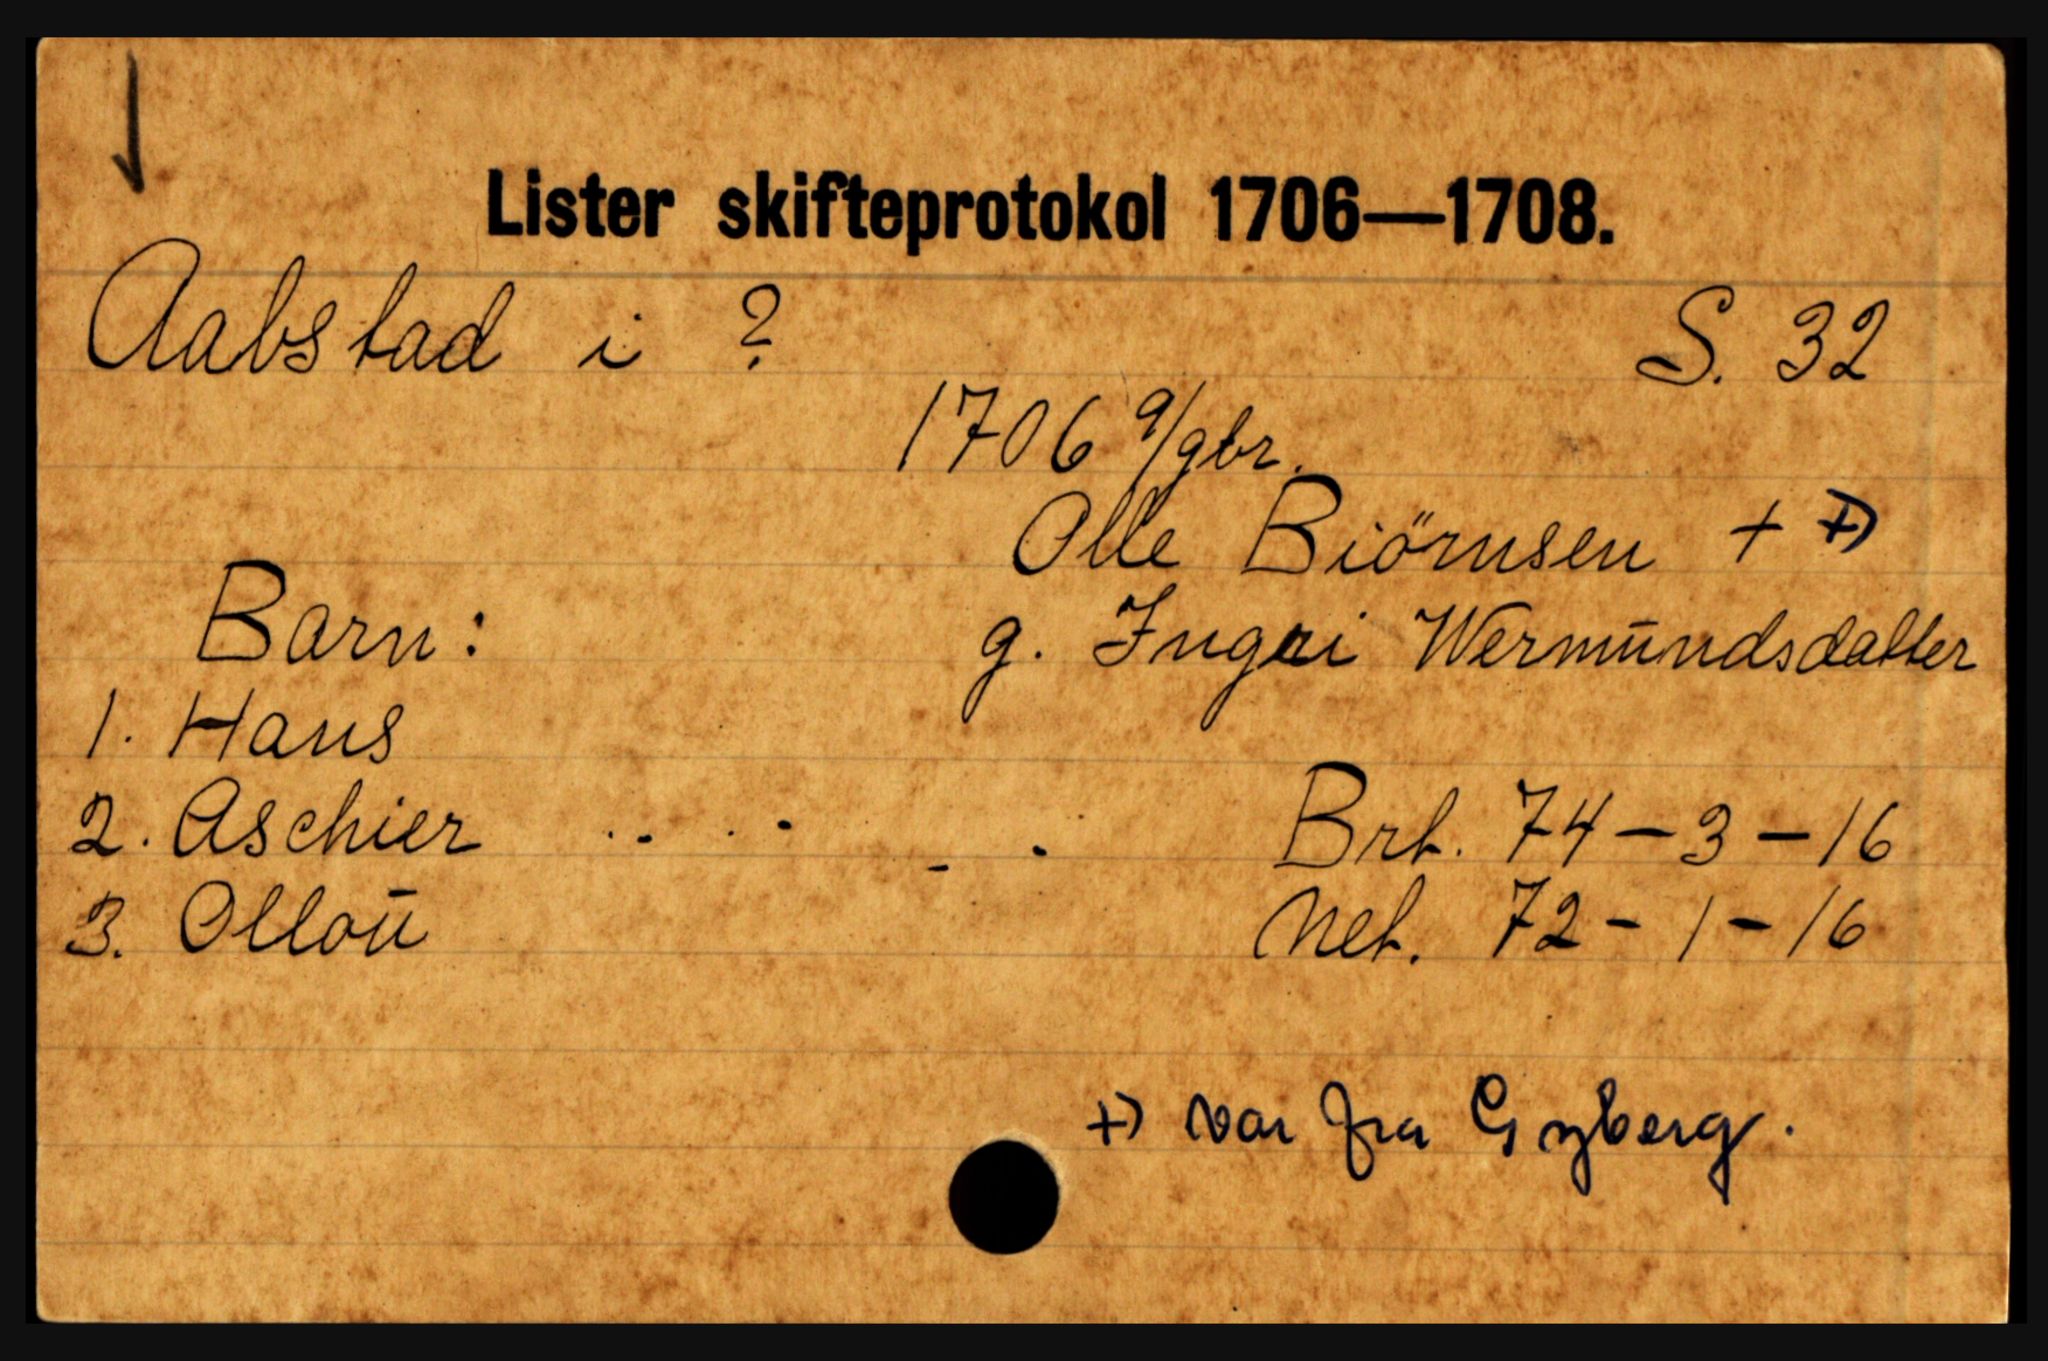 Lister skifteprotokol 1706—1708.
Aabstad i ? S. 32
1706 9/9br.
Olle Biörnsen + +)
Barn: g. Ingri Wermūndsdatter
1. Hans
2. Aschier Brt. 74 - 3 - 16
3. Olloū Net. 72 - 1 - 16
+) var fra Gyberg.